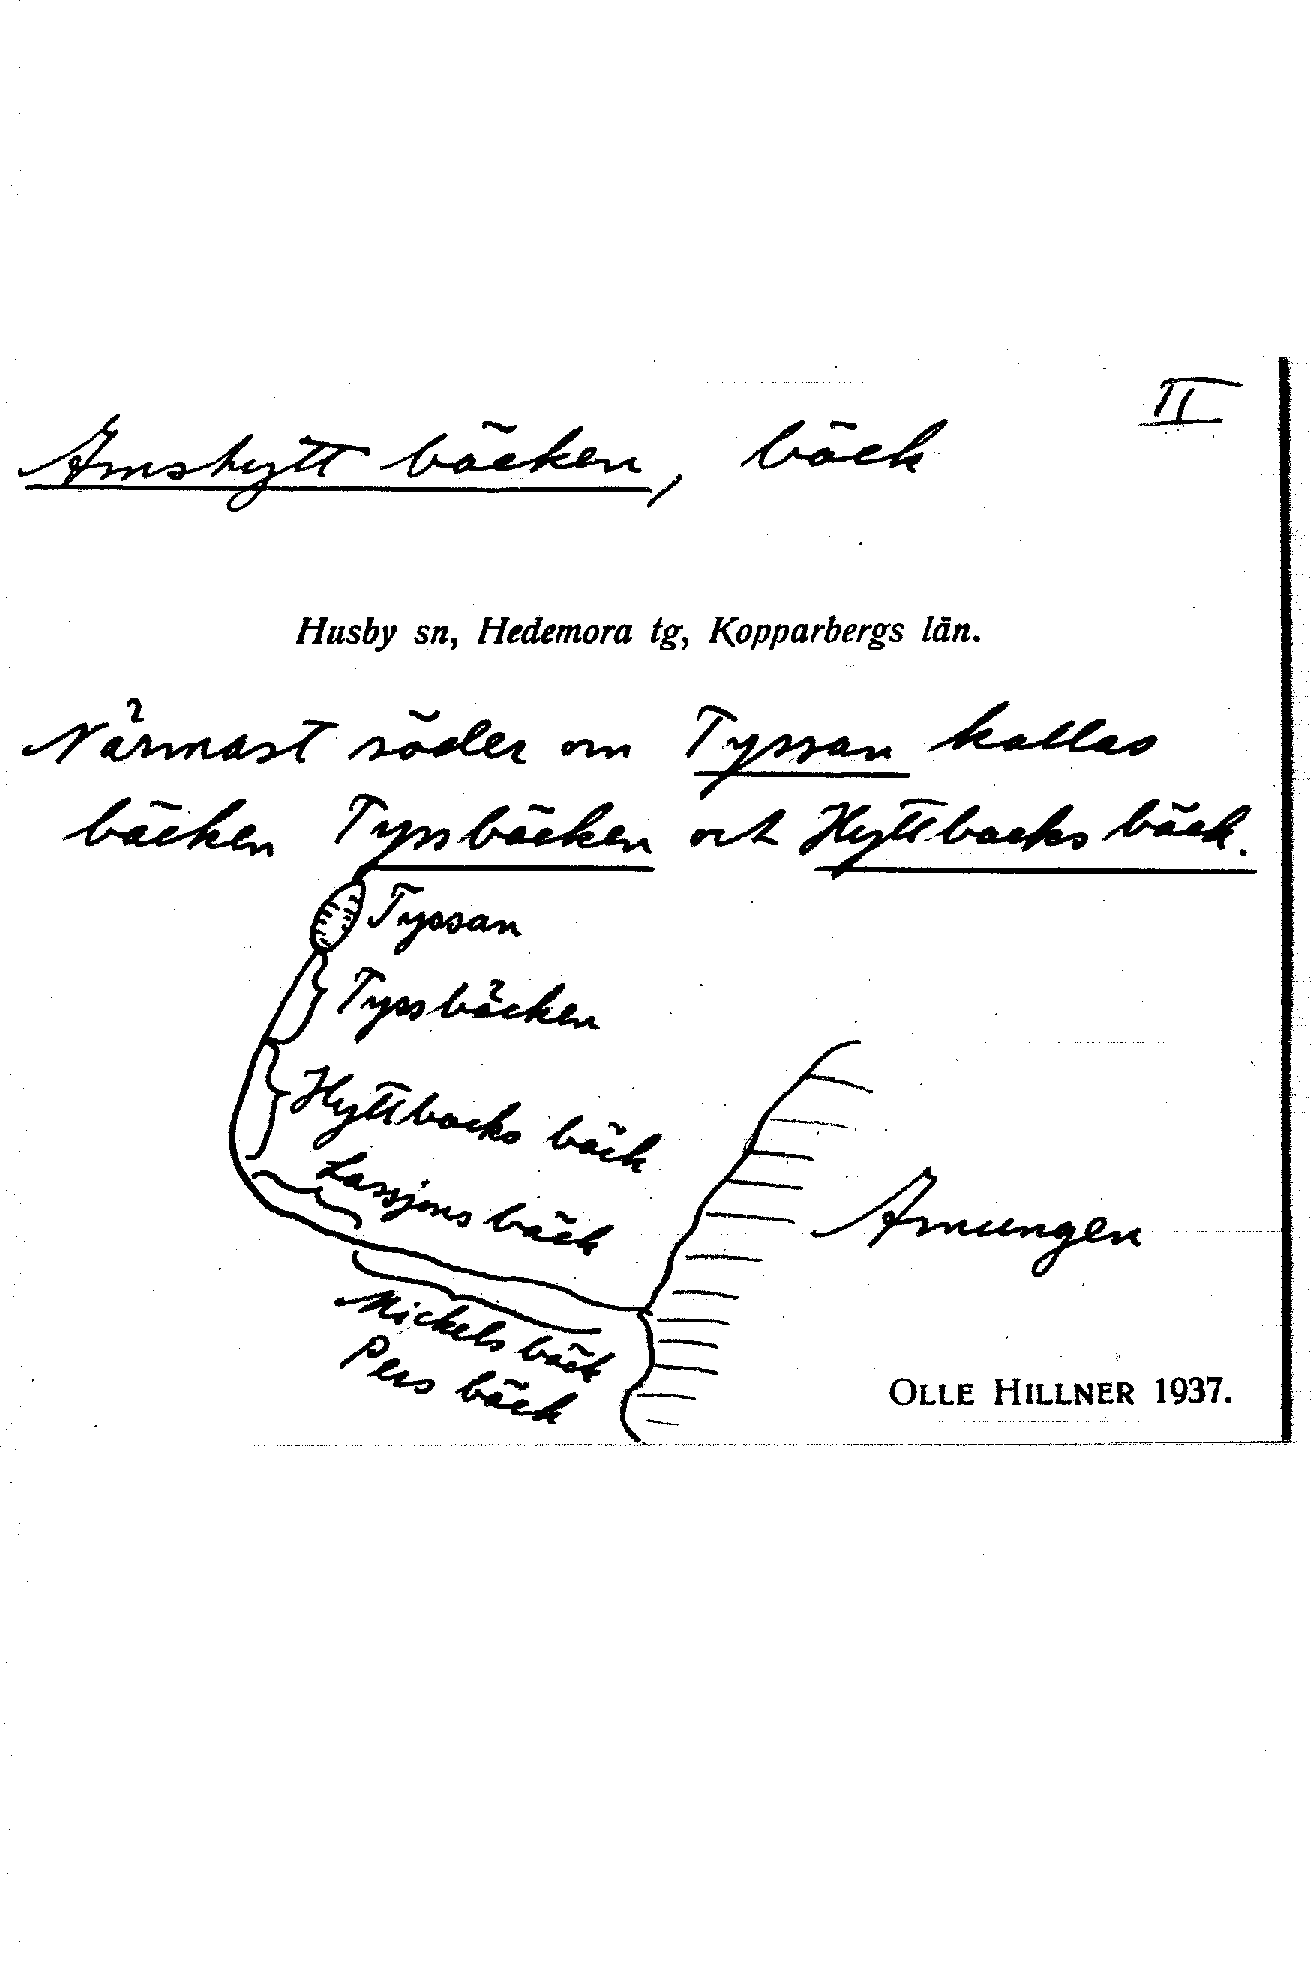 II
Amshyttbäcken, bäck
Husby sn, Hedemora tg, Kopparbergs län.
Närmast söder om Tyssan kallas
bäcken Tyssbäcken och Hyttbacks bäck.
Tyssan
Tyssbäcken
Hyttbacks bäck
Lassjons bäck
Amungen
Mickels bäck
Pers bäck
OLLE HILLNER 1937.